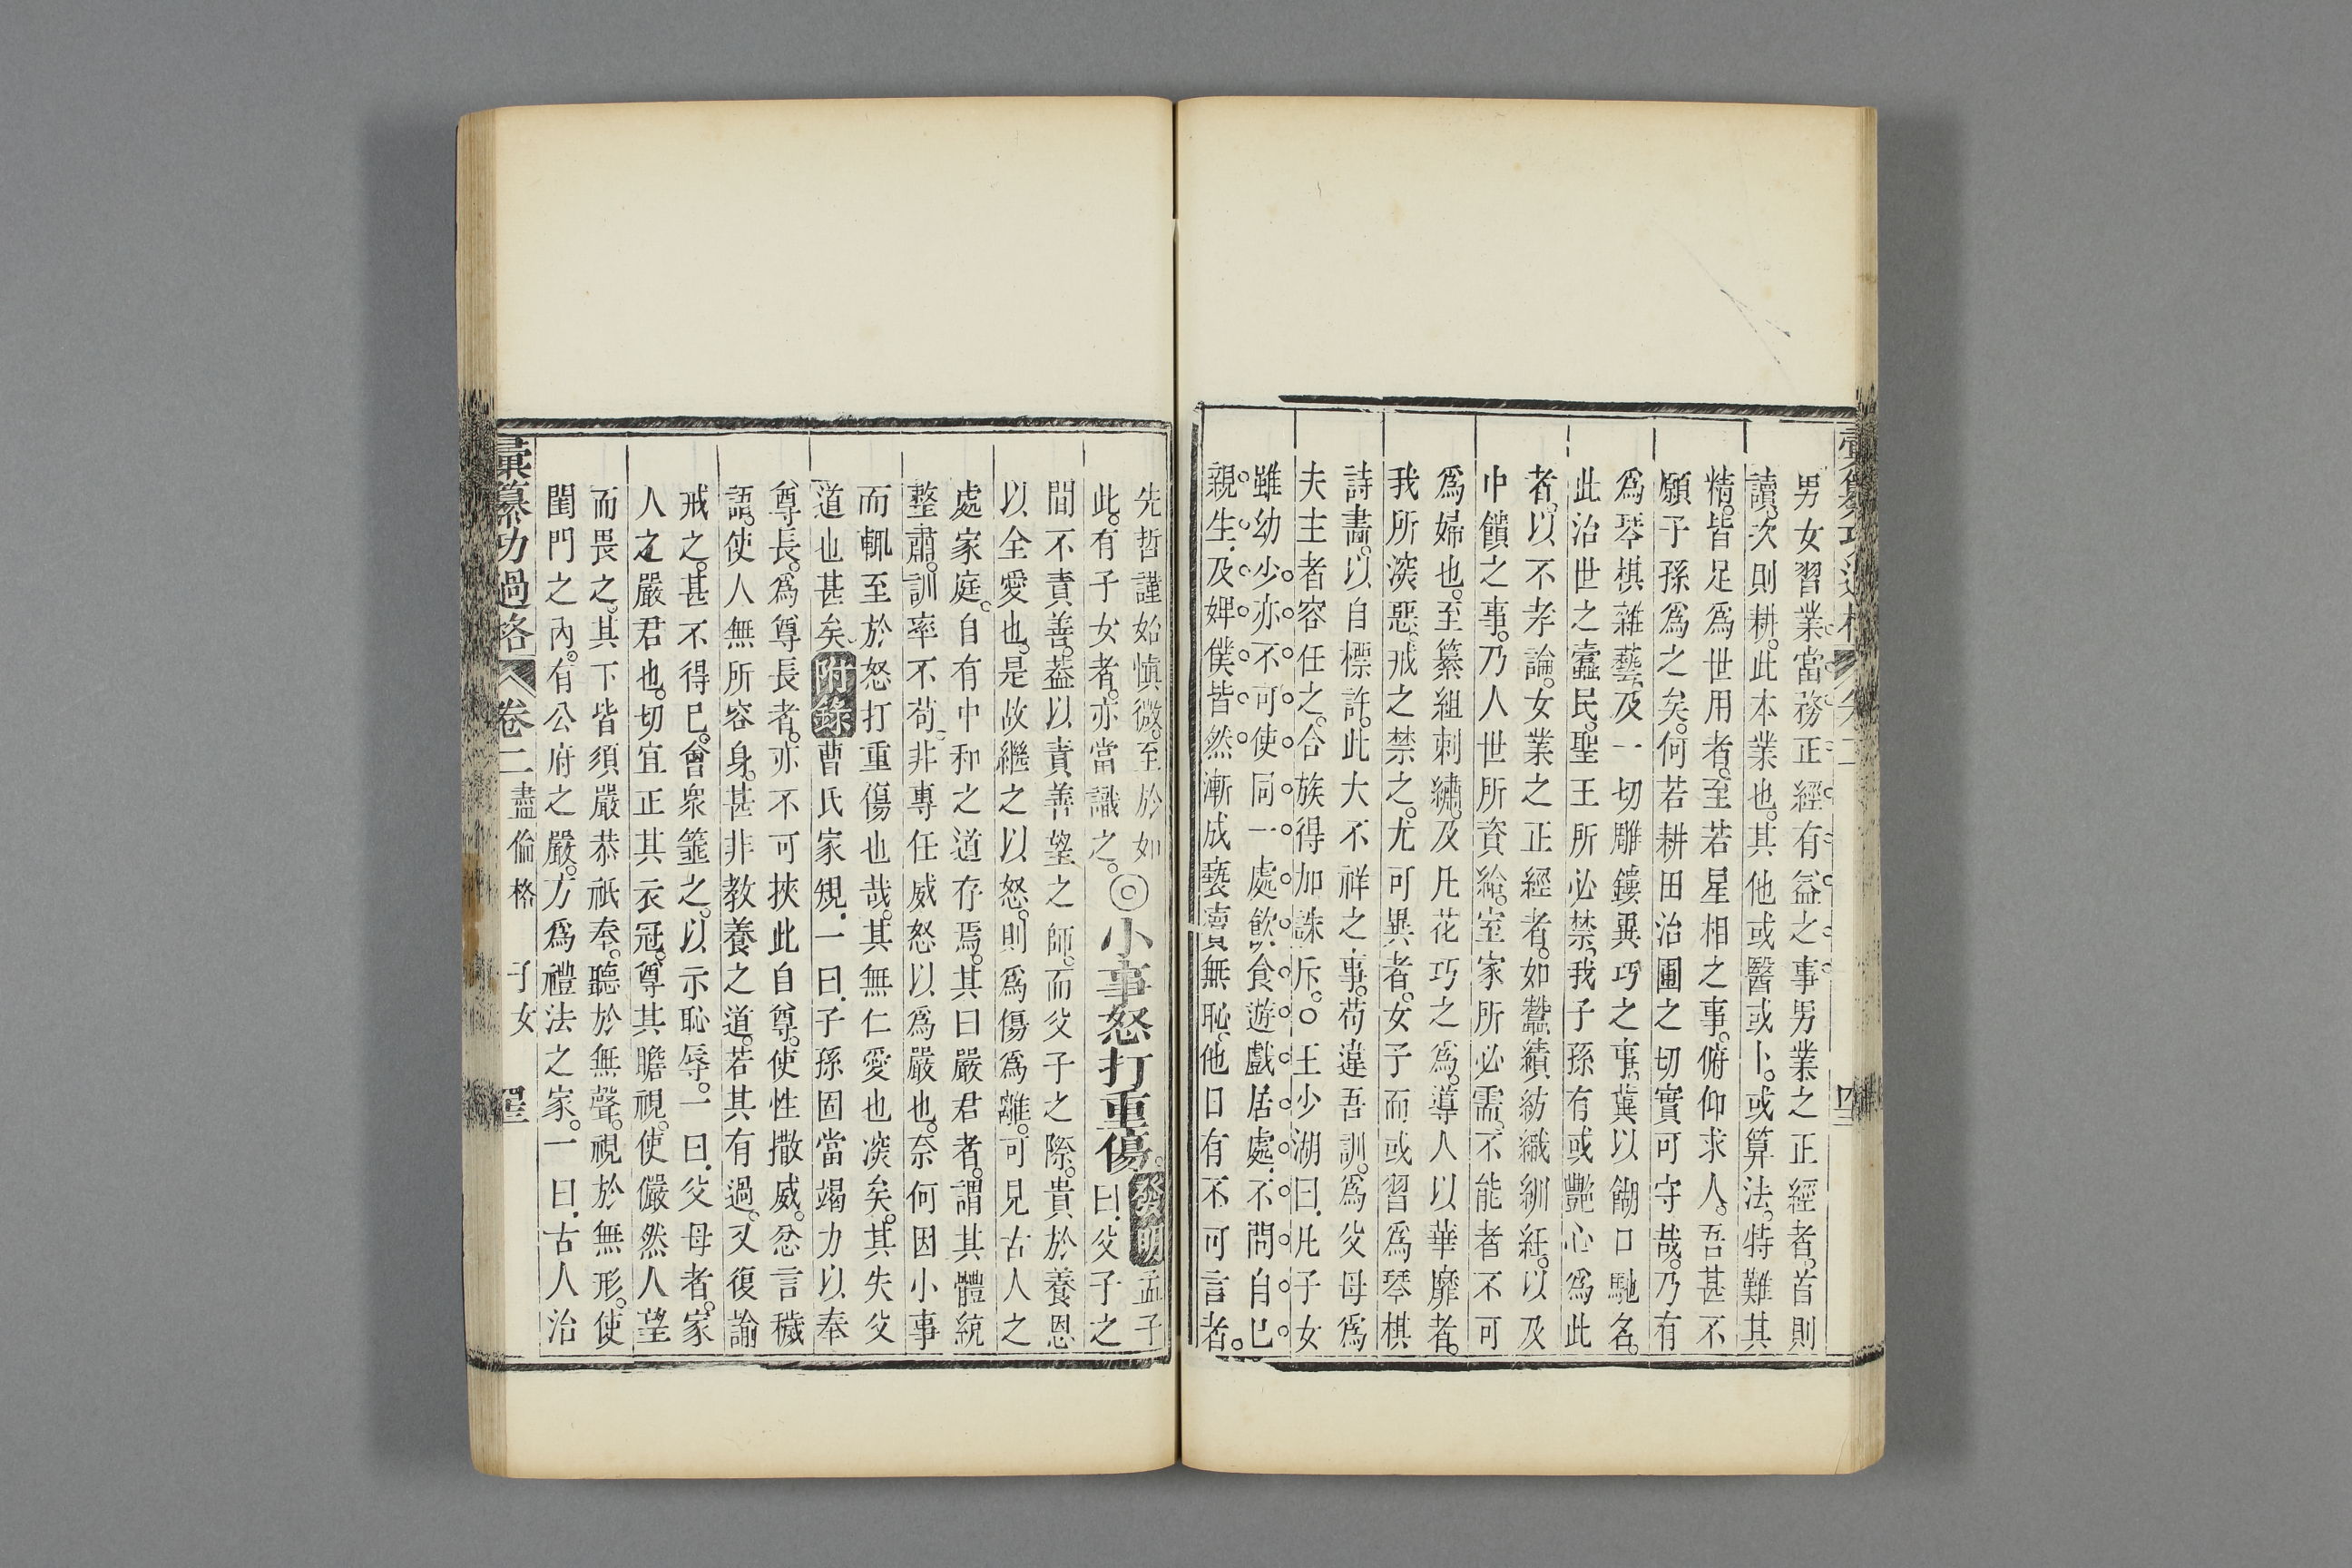 彙纂功過格 卷二
男女習業當務正經有益之事男業之正經者首則
讀次則耕此本業也其他或醫或卜或算法特難其
精皆足爲世用者至若星相之事俯仰求人吾甚不
願子孫爲之矣何若耕田治圃之切實可守哉乃有
爲琴棋雜藝及一切雕鏤異巧之事冀以餬口馳名
此治世之蠹民聖王所必禁我子孫有或艷心爲此
者以不孝論女業之正經者如蠶績紡織紃紝以及
中饋之事乃人世所資給室家所必需不能者不可
爲婦也至纂組刺繡及凡花巧之爲導人以華靡者
我所深惡戒之禁之尤可異者女子而或習爲琴棋
詩畫以自標許此大不祥之事苟違吾訓爲父母爲
夫主者容任之合族得加誅斥○王少湖曰凡子女
雖幼少亦不可使同一處飲食遊戲居處不問自己
親生及婢僕皆然漸成褻瀆無恥他日有不可言者
先哲謹始慎微至於如
此有子女者亦當識之◎小事怒打重傷發明孟子曰父子之
間不責善蓋以責善望之師而父子之際貴於養恩
以全愛也是故繼之以怒則爲傷爲離可見古人之
處家庭自有中和之道存焉其曰嚴君者謂其體統
整肅訓率不苟非專任威怒以爲嚴也奈何因小事
而輒至於怒打重傷也哉其無仁愛也深矣其失父
道也甚矣附錄曹氏家規一曰子孫固當竭力以奉
尊長爲尊長者亦不可挾此自尊使性撒威忿言穢
語使人無所容身甚非教養之道若其有過反復諭
戒之甚不得已會衆箠之以示恥辱一曰父母者家
人之嚴君也切宜正其衣冠尊其瞻視使儼然人望
而畏之其下皆須嚴恭祇奉聽於無聲視於無形使
閨門之內有公府之嚴方爲禮法之家一曰古人治
彙纂功過格 卷二 盡倫格 子女